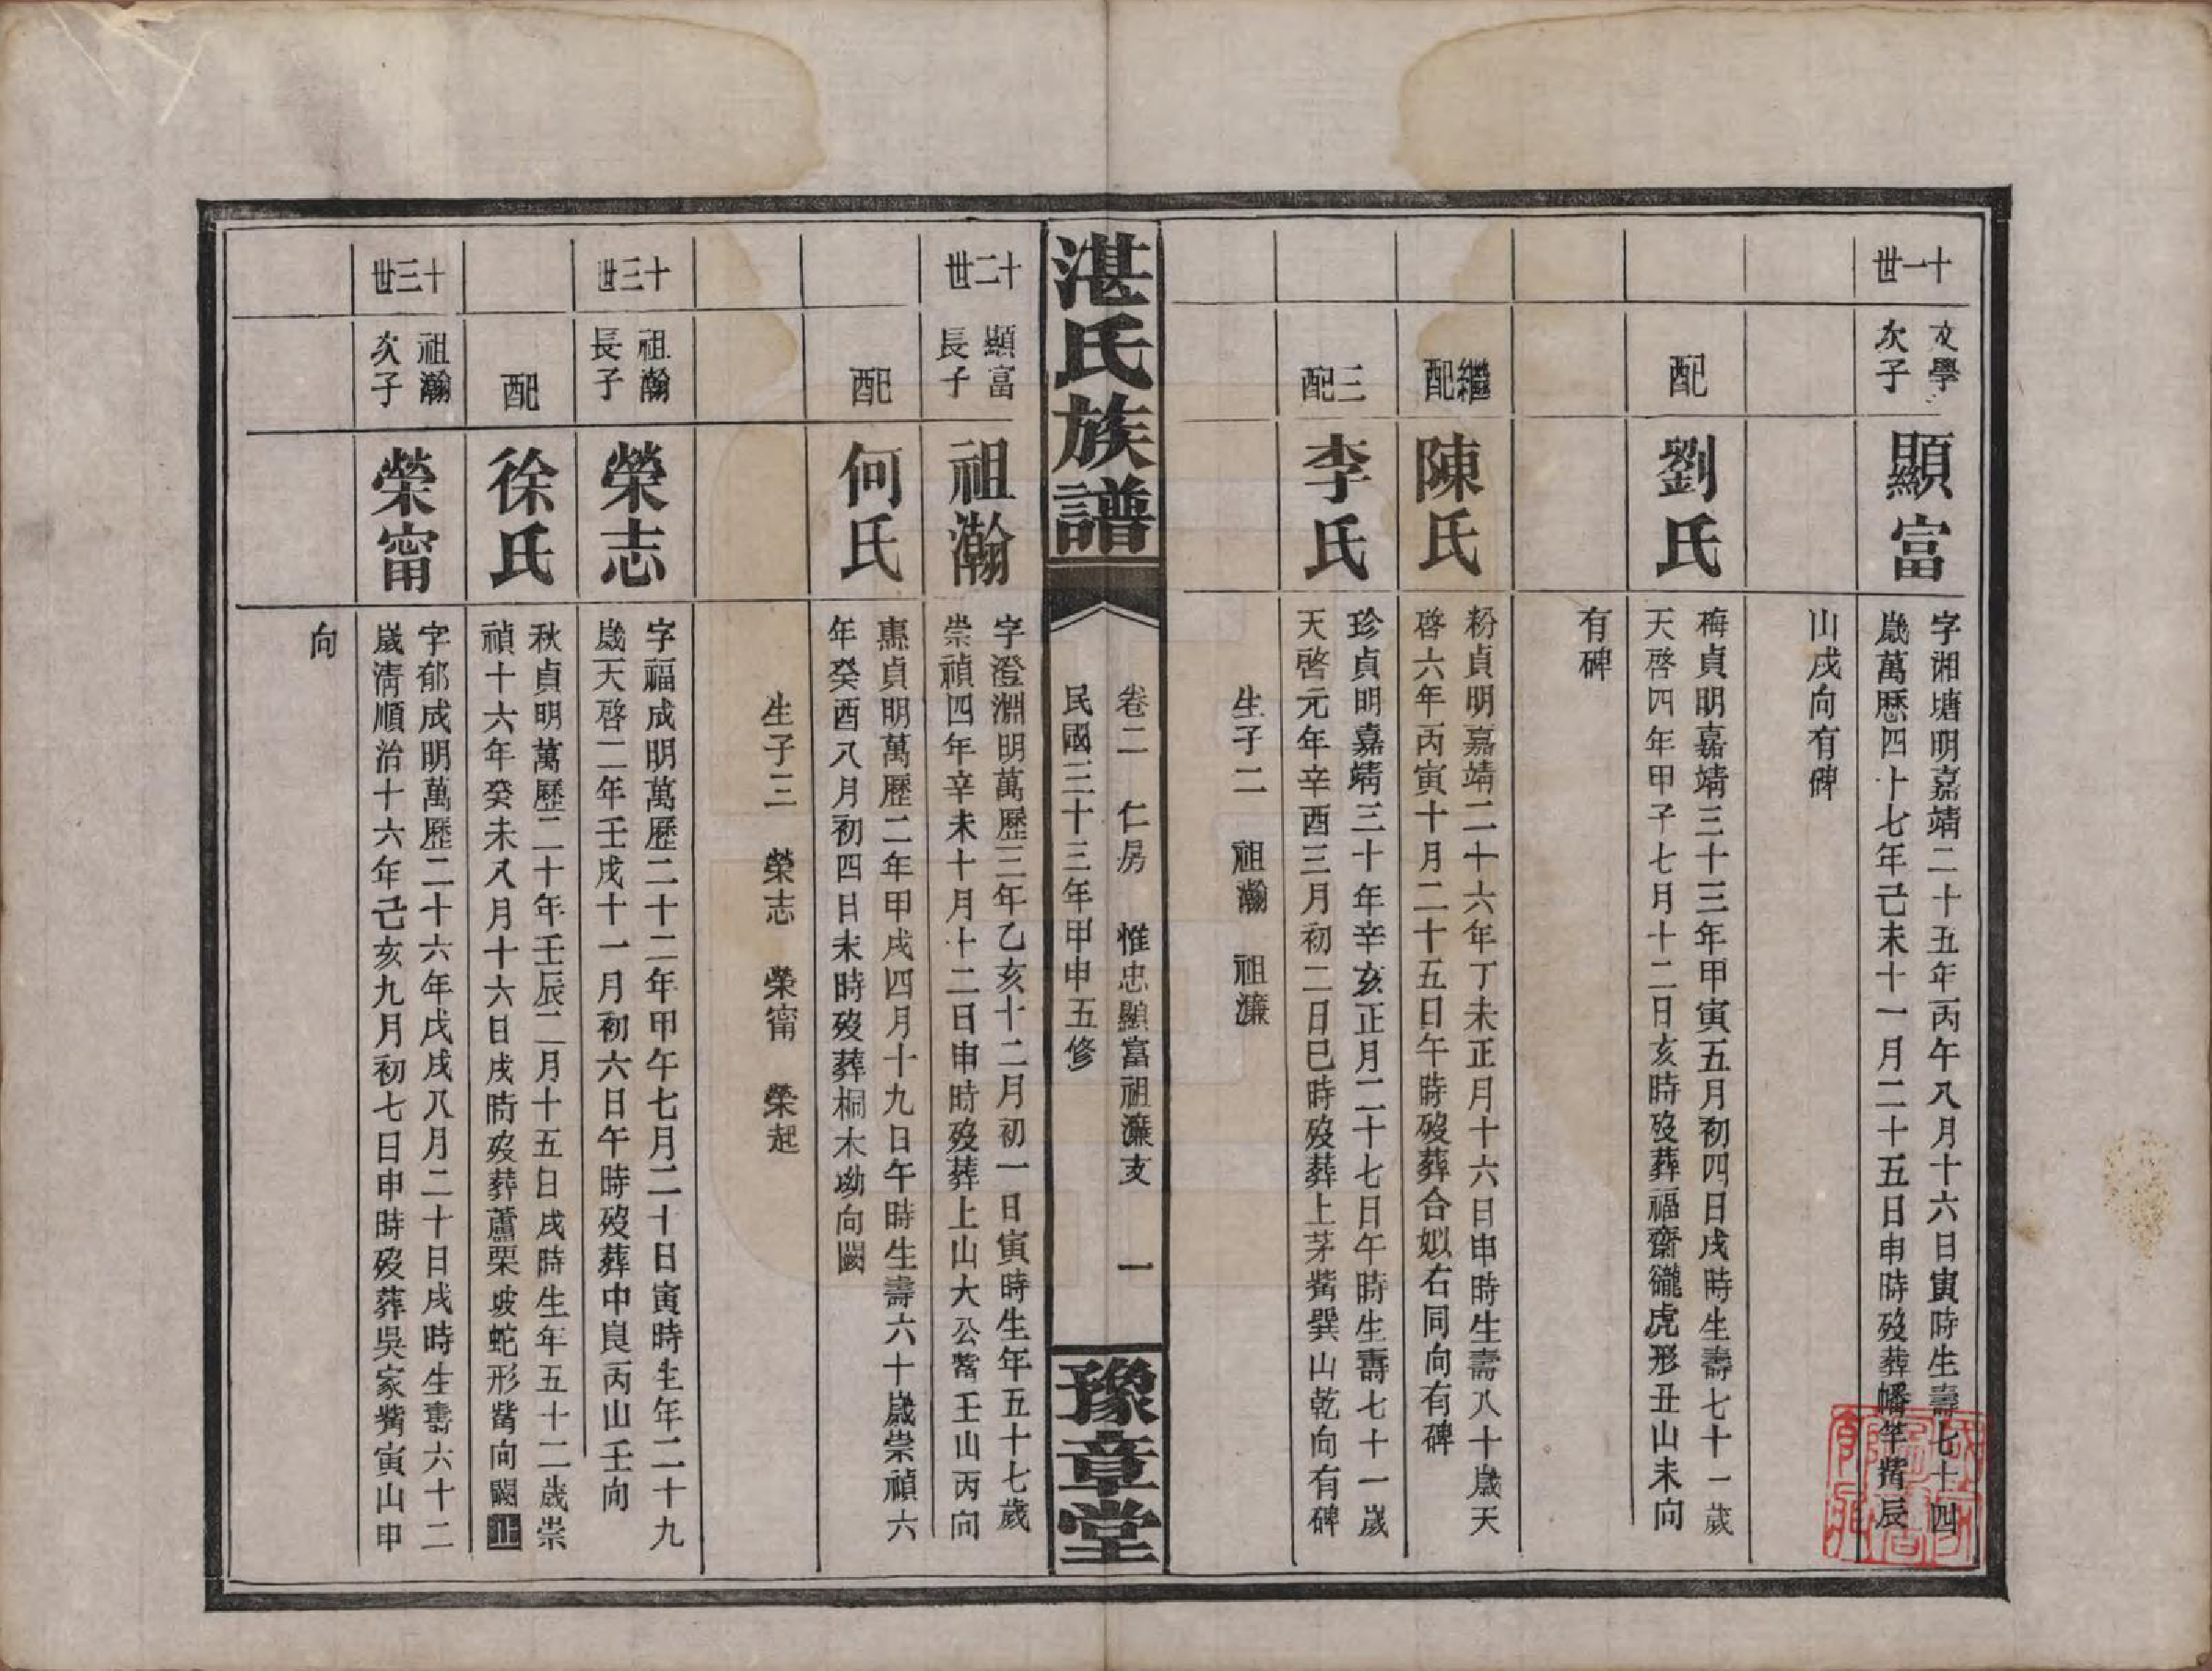 十一世
文學
次子
顯富
字湘塘明嘉靖二十五年丙午八月十六日寅時生壽七十四
歲萬歷四十七年己未十一月二十五日申時歿葬幡竿嘴辰
山戌向有碑
配
劉氏
梅貞明嘉靖三十三年甲寅五月初四日戌時生壽七十一歲
天啓四年甲子七月十二日亥時歿葬福齋壠虎形丑山未向
有碑
繼配
陳氏
粉貞明嘉靖二十六年丁未正月十六日申時生壽八十歲天
啓六年丙寅十月二十五日午時歿葬合姒右同向有碑
三配
李氏
珍貞明嘉靖三十年辛亥正月二十七日午時生壽七十一歲
天啓元年辛酉三月初二日巳時歿葬上茅嘴巽山乾向有碑
生子二 祖瀚 祖濂
湛氏族譜
卷二 仁房 惟忠顯富祖濂支 一
民國三十三年甲申五修
豫章堂
十二世
顯富
長子
祖瀚
字澄淵明萬歷三年乙亥十二月初一日寅時生年五十七歲
崇禎四年辛未十月十二日申時歿葬上山大公嘴壬山丙向
配
何氏
惠貞明萬歷二年甲戌四月十九日午時生壽六十歲崇禎六
年癸酉八月初四日未時歿葬桐木坳向闕
生子三 榮志 榮甯 榮起
十三世
祖瀚
長子
榮志
字福成明萬歷二十二年甲午七月二十日寅時生年二十九
歲天啓二年壬戌十一月初六日午時歿葬中良丙山壬向
配
徐氏
秋貞明萬歷二十年壬辰二月十五日戌時生年五十二歲崇
禎十六年癸未八月十六日戌時歿葬蘆栗坡蛇形嘴向闕止
十三世
祖瀚
次子
榮甯
字郁成明萬歷二十六年戊戌八月二十日戌時生壽六十二
歲淸順治十六年己亥九月初七日申時歿葬吳家嘴寅山申
向